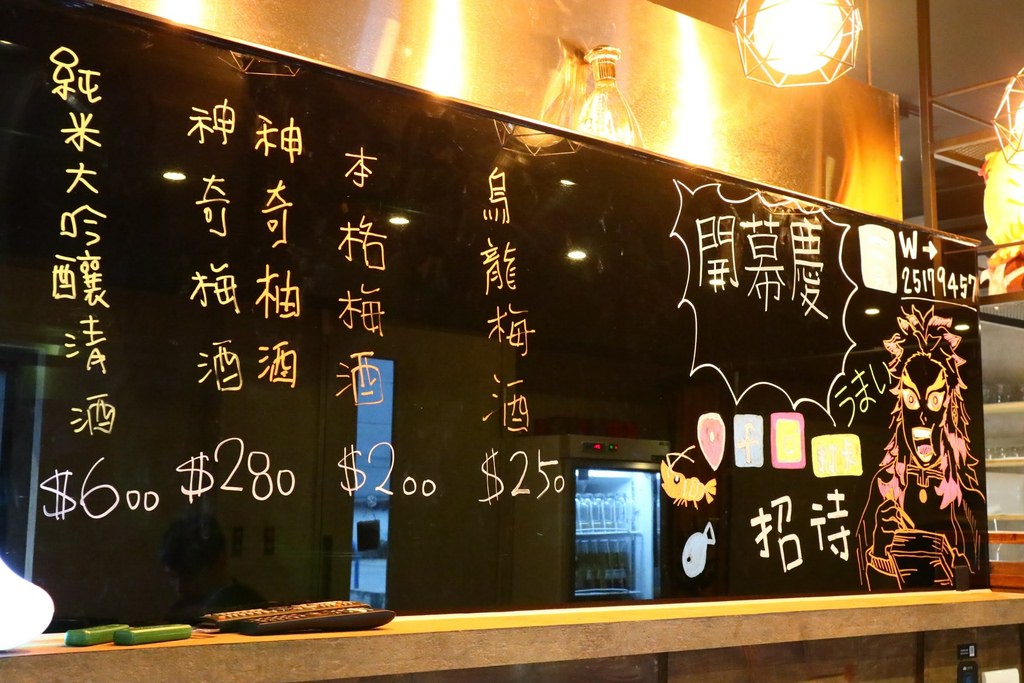 純米大吟釀清酒
$600
神奇梅酒
神奇柚酒
$280
本格梅酒
$200
烏龍梅酒
$250
開幕慶
W→
25179457
うまい
f
打卡
招待